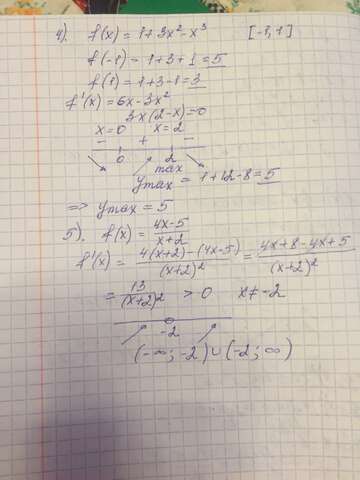 4). f(x) = 1+3x²-x³ [-1,1]
f(-1) = 1+3+1=5
f(1) = 1+3-1=3
f'(x) = 6x-3x²
3x(2-x)=0
x=0 x=2
- + -
0 2
max
ymax = 1+12-8=5
=> ymax = 5
5). f(x) = (4x-5)/(x+2)
f'(x) = (4(x+2)-(4x-5))/(x+2)² = (4x+8-4x+5)/(x+2)²
= 13/(x+2)² > 0 x≠-2
-2
(-∞; -2)∪(-2; ∞)